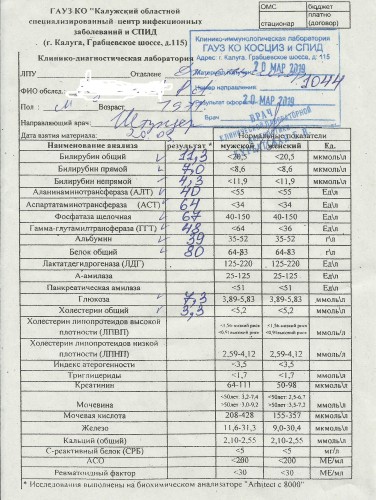 ГАУЗ КО "Калужский областной
специализированный центр инфекционных
заболеваний и СПИД
(г. Калуга, Грабцевское шоссе, д.115)
Клинико-диагностическая лаборатория
ОМС бюджет
стационар платно (договор)
Клинико-иммунологическая лаборатория
ГАУЗ КО КОСЦИЗ и СПИД
Адрес: г. Калуга, Грабцевское шоссе, д. 115
20 МАР 2019
1044
20 МАР 2019
Врач
ВРАЧ
ЛПУ Отделение
ФИО обслед.
Пол: м Возраст
Направляющий врач:
Дата взятия материала: 20.03
Нормальные показатели
Наименование анализа результат * мужской женский Ед.
Билирубин общий 11,3 <20,5 <20,5 мкмоль\л
Билирубин прямой 7,0 <8,6 <8,6 мкмоль\л
Билирубин непрямой 4,3 <11,9 <11,9 мкмоль\л
Аланинаминотрансфераза (АЛТ) 40 <55 <55 Ед\л
Аспартатаминотрансфераза (АСТ) 64 <34 <34 Ед\л
Фосфатаза щелочная 67 40-150 40-150 Ед\л
Гамма-глутамилтрансфераза (ГГТ) 48 <64 <36 Ед\л
Альбумин 39 35-52 35-52 г\л
Белок общий 80 64-83 64-83 г\л
Лактатдегидрогеназа (ЛДГ) 125-220 125-220 Ед\л
А-амилаза 25-125 25-125 Ед\л
Панкреатическая амилаза <51 <51 Ед\л
Глюкоза 7,3 3,89-5,83 3,89-5,83 ммоль\л
Холестерин общий 3,3 <5,2 <5,2 ммоль\л
Холестерин липопротеидов высокой
плотности (ЛПВП) ммоль\л
Холестерин липопротеидов низкой
плотности (ЛПНП) 2,59-4,12 2,59-4,12 ммоль\л
Индекс атерогенности <3,5 <3,5
Триглицериды <1,7 <1,7 ммоль\л
Креатинин 64-111 50-98 мкмоль\л
<50лет: 3,2-7,4 <50лет: 2,5-6,7
Мочевина >50лет: 3,0-9,2 >50лет: 3,5-7,2 ммоль\л
Мочевая кислота 208-428 155-357 мкмоль\л
Железо 11,6-31,3 9,0-30,4 мкмоль\л
Кальций (общий) 2,10-2,55 2,10-2,55 ммоль\л
С-реактивный белок (СРБ) <5 <5 мг/л
АСО <200 <200 МЕ/мл
Ревматоидный фактор <30 <30 МЕ/мл
* Исследования выполнены на биохимическом анализаторе "Arhitect c 8000"